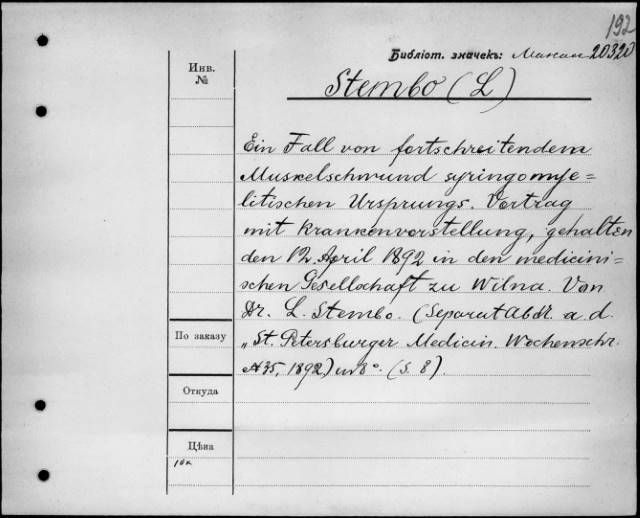 192
Библіот. значекъ: 20320
Инв.
№
Stembo (L)
Ein Fall von fortschreitendem
Muskelschwund syringomye=
litischen Ursprungs. Vortrag
mit Krankenvorstellung, gehalten
den 12. April 1892 in den medicini=
schen Gesellschaft zu Wilna. Von
Dr. L. Stembo. (Separat Abdr. a. d.
По заказу
„St. Petersburger Medicin. Wochenschr.
№ 35, 1892) in 8°. (S. 8).
Откуда
Цѣна
10к